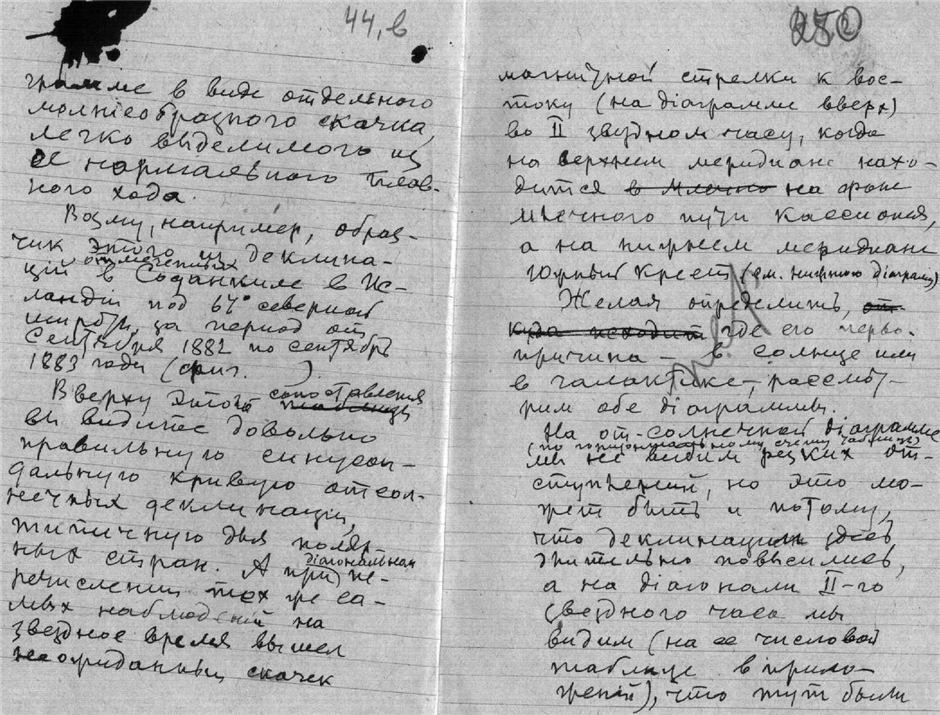 44, в
грамме в виде отдельного
молніеобразного скачка,
легко выделимого из
ее нормального плав-
ного хода.
Возму, например, образ-
чик этого из деклина-
цій отмеченных в Соданкиле в Ис-
ландіи под 67° северной
широты, за период от
Сентября 1882 по сентябрь
1883 года (ориг. )
Вверху этого сопоставления таблицы
вы видите довольно
правильную синусои-
дальную кривую отсол-
нечных деклинацій,
типичную для поляр-
ных стран. А при діагональном пе-
речислении тех же са-
мых наблюденій на
звездное время вышел
неожиданный скачек
250
магнитной стрелки к вос-
току (на діаграмме вверх)
во II звездном часу, когда
на верхнем меридиане нахо-
дится в млечно на фоне
млечного пути Кассиопея,
а на нижнем меридиане
Южный Крест (см. нижнюю діаграмму)
Желая определить, от-
куда исходит где его перво-
причина — в солнце или
в галактике, рассмот-
рим обе діаграммы.
На от-солнечной діаграмме
(по горизонтальному счету таблицы)
мы не видим резких от-
ступленій, но это мо-
жет быть и потому,
что деклинации здесь
длительно повысились,
а на діагонали II-го
звездного часа мы
видим (на ее числовой
таблице в прило-
женіи), что тут были